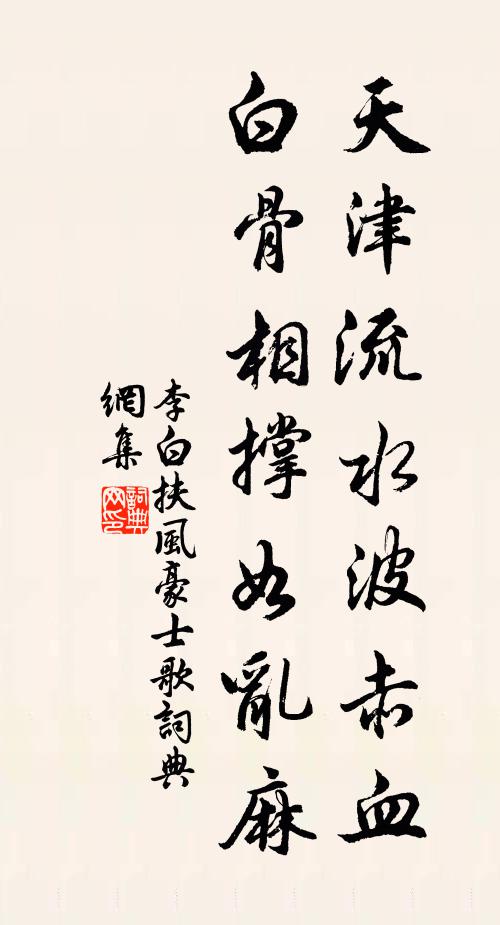 天津流水波赤血
白骨相撐如亂麻
李白扶風豪士歌詞典
網集
詞典網印